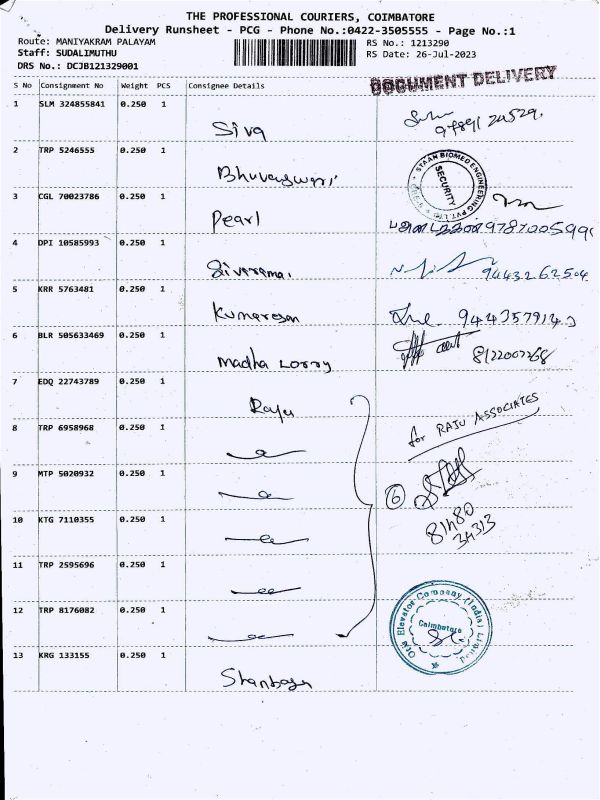 THE PROFESSIONAL COURIERS, COIMBATORE
Delivery Runsheet - PCG - Phone No.:0422-3505555 - Page No.:1
Route: MANIYAKRAM PALAYAM
RS No.: 1213290
Staff: SUDALIMUTHU
RS Date: 26-Jul-2023
DRS No.: DCJB121329001
DOCUMENT DELIVERY
S No Consignment No Weight PCS Consignee Details
1 SLM 324855841 0.250 1 Siva
2 TRP 5246555 0.250 1 Bhuvaneswari
STAAN BIOMED ENGINEERING PVT. LTD.
SECURITY
3 CGL 70023786 0.250 1 Pearl
9787005991
4 DPI 10585993 0.250 1 Sivaramai
9443262504
5 KRR 5763481 0.250 1 Kumaresan
9443579143
6 BLR 505633469 0.250 1 Madha Lorry
8122007268
7 EDQ 22743789 0.250 1 Raju
for RAJU ASSOCIATES
8 TRP 6958968 0.250 1
9 MTP 5020932 0.250 1
6
10 KTG 7110355 0.250 1
81480
34313
11 TRP 2595696 0.250 1
12 TRP 8176082 0.250 1
Otis Elevator Company (India) Limited
Coimbatore
13 KRG 133155 0.250 1 Shanbaga